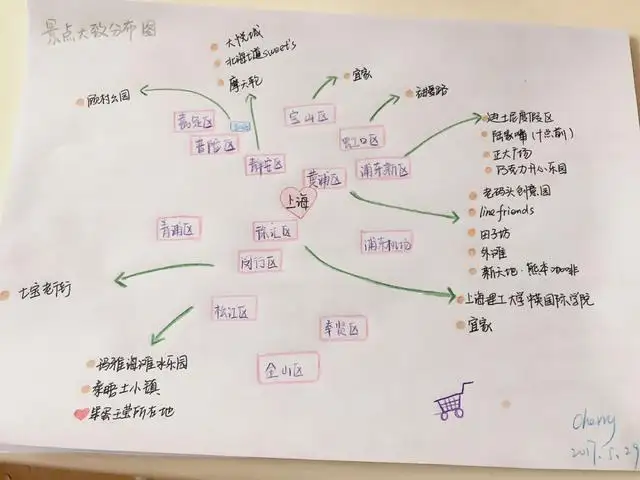 景点大致分布图
大悦城
北海道sweet's
摩天轮
宜家
甜爱路
顾村公园
嘉定区
普陀区
静安区
宝山区
虹口区
黄埔区
浦东新区
迪士尼度假区
陆家嘴(十点前)
正大广场
巧克力开心乐园
老码头创意园
line friends
田子坊
外滩
新天地·熊本咖啡
上海
青浦区
徐汇区
闵行区
浦东机场
上海理工大学中英国际学院
宜家
七宝老街
松江区
奉贤区
金山区
玛雅海滩水乐园
泰晤士小镇
毕雯王莹所在地
Cherry
2017.5.29